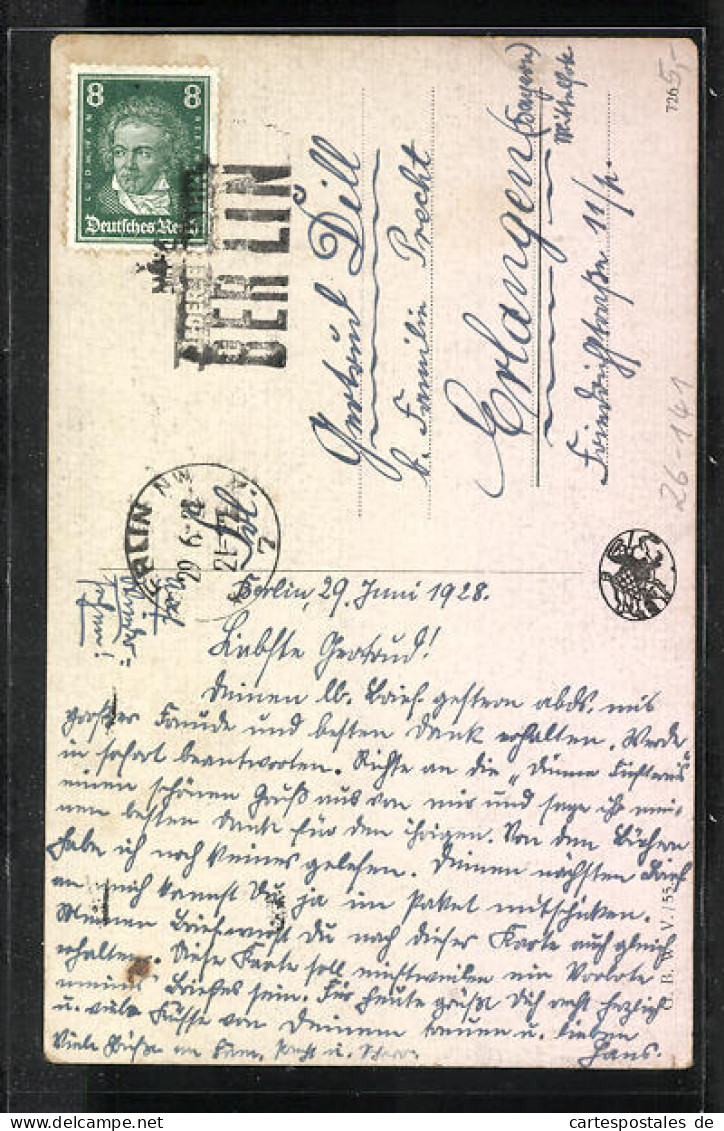 8 8
Deutsches Reich
BERLIN
BERLIN NW
29 6.28
Gertrud Dill
b. Familie Precht
Erlangen (Bayern)
Mittelfrk.
Friedrichstraße 11/I.
726
5,-
26-141
Berlin, 29. Juni 1928.
Liebste Gertrud!
Deinen lb. Brief gestern abds. mit
großer Freude und besten Dank erhalten. Werde
in sofort beantworten. Richte an die „Dünne
einen schönen Gruß aus von mir und sage ihr mei-
nen besten Dank für den ihrigen. Von den Büchern
habe ich noch keines gelesen. Deinen nächsten Brief
an mich kannst Du ja im Paket mitschicken.
Meinen Brief wirst Du nach dieser Karte auch gleich
erhalten. Diese Karte soll einstweilen ein Vorbote
meines Briefes sein. Für heute grüßt Dich recht herzlich
u. viele Küsse von Deinem treuen u. lieben
Hans.
Viele Grüße an Fam. Precht u.
Wieder-
sehen!
G. B. W. V. / 55
cartespostales de